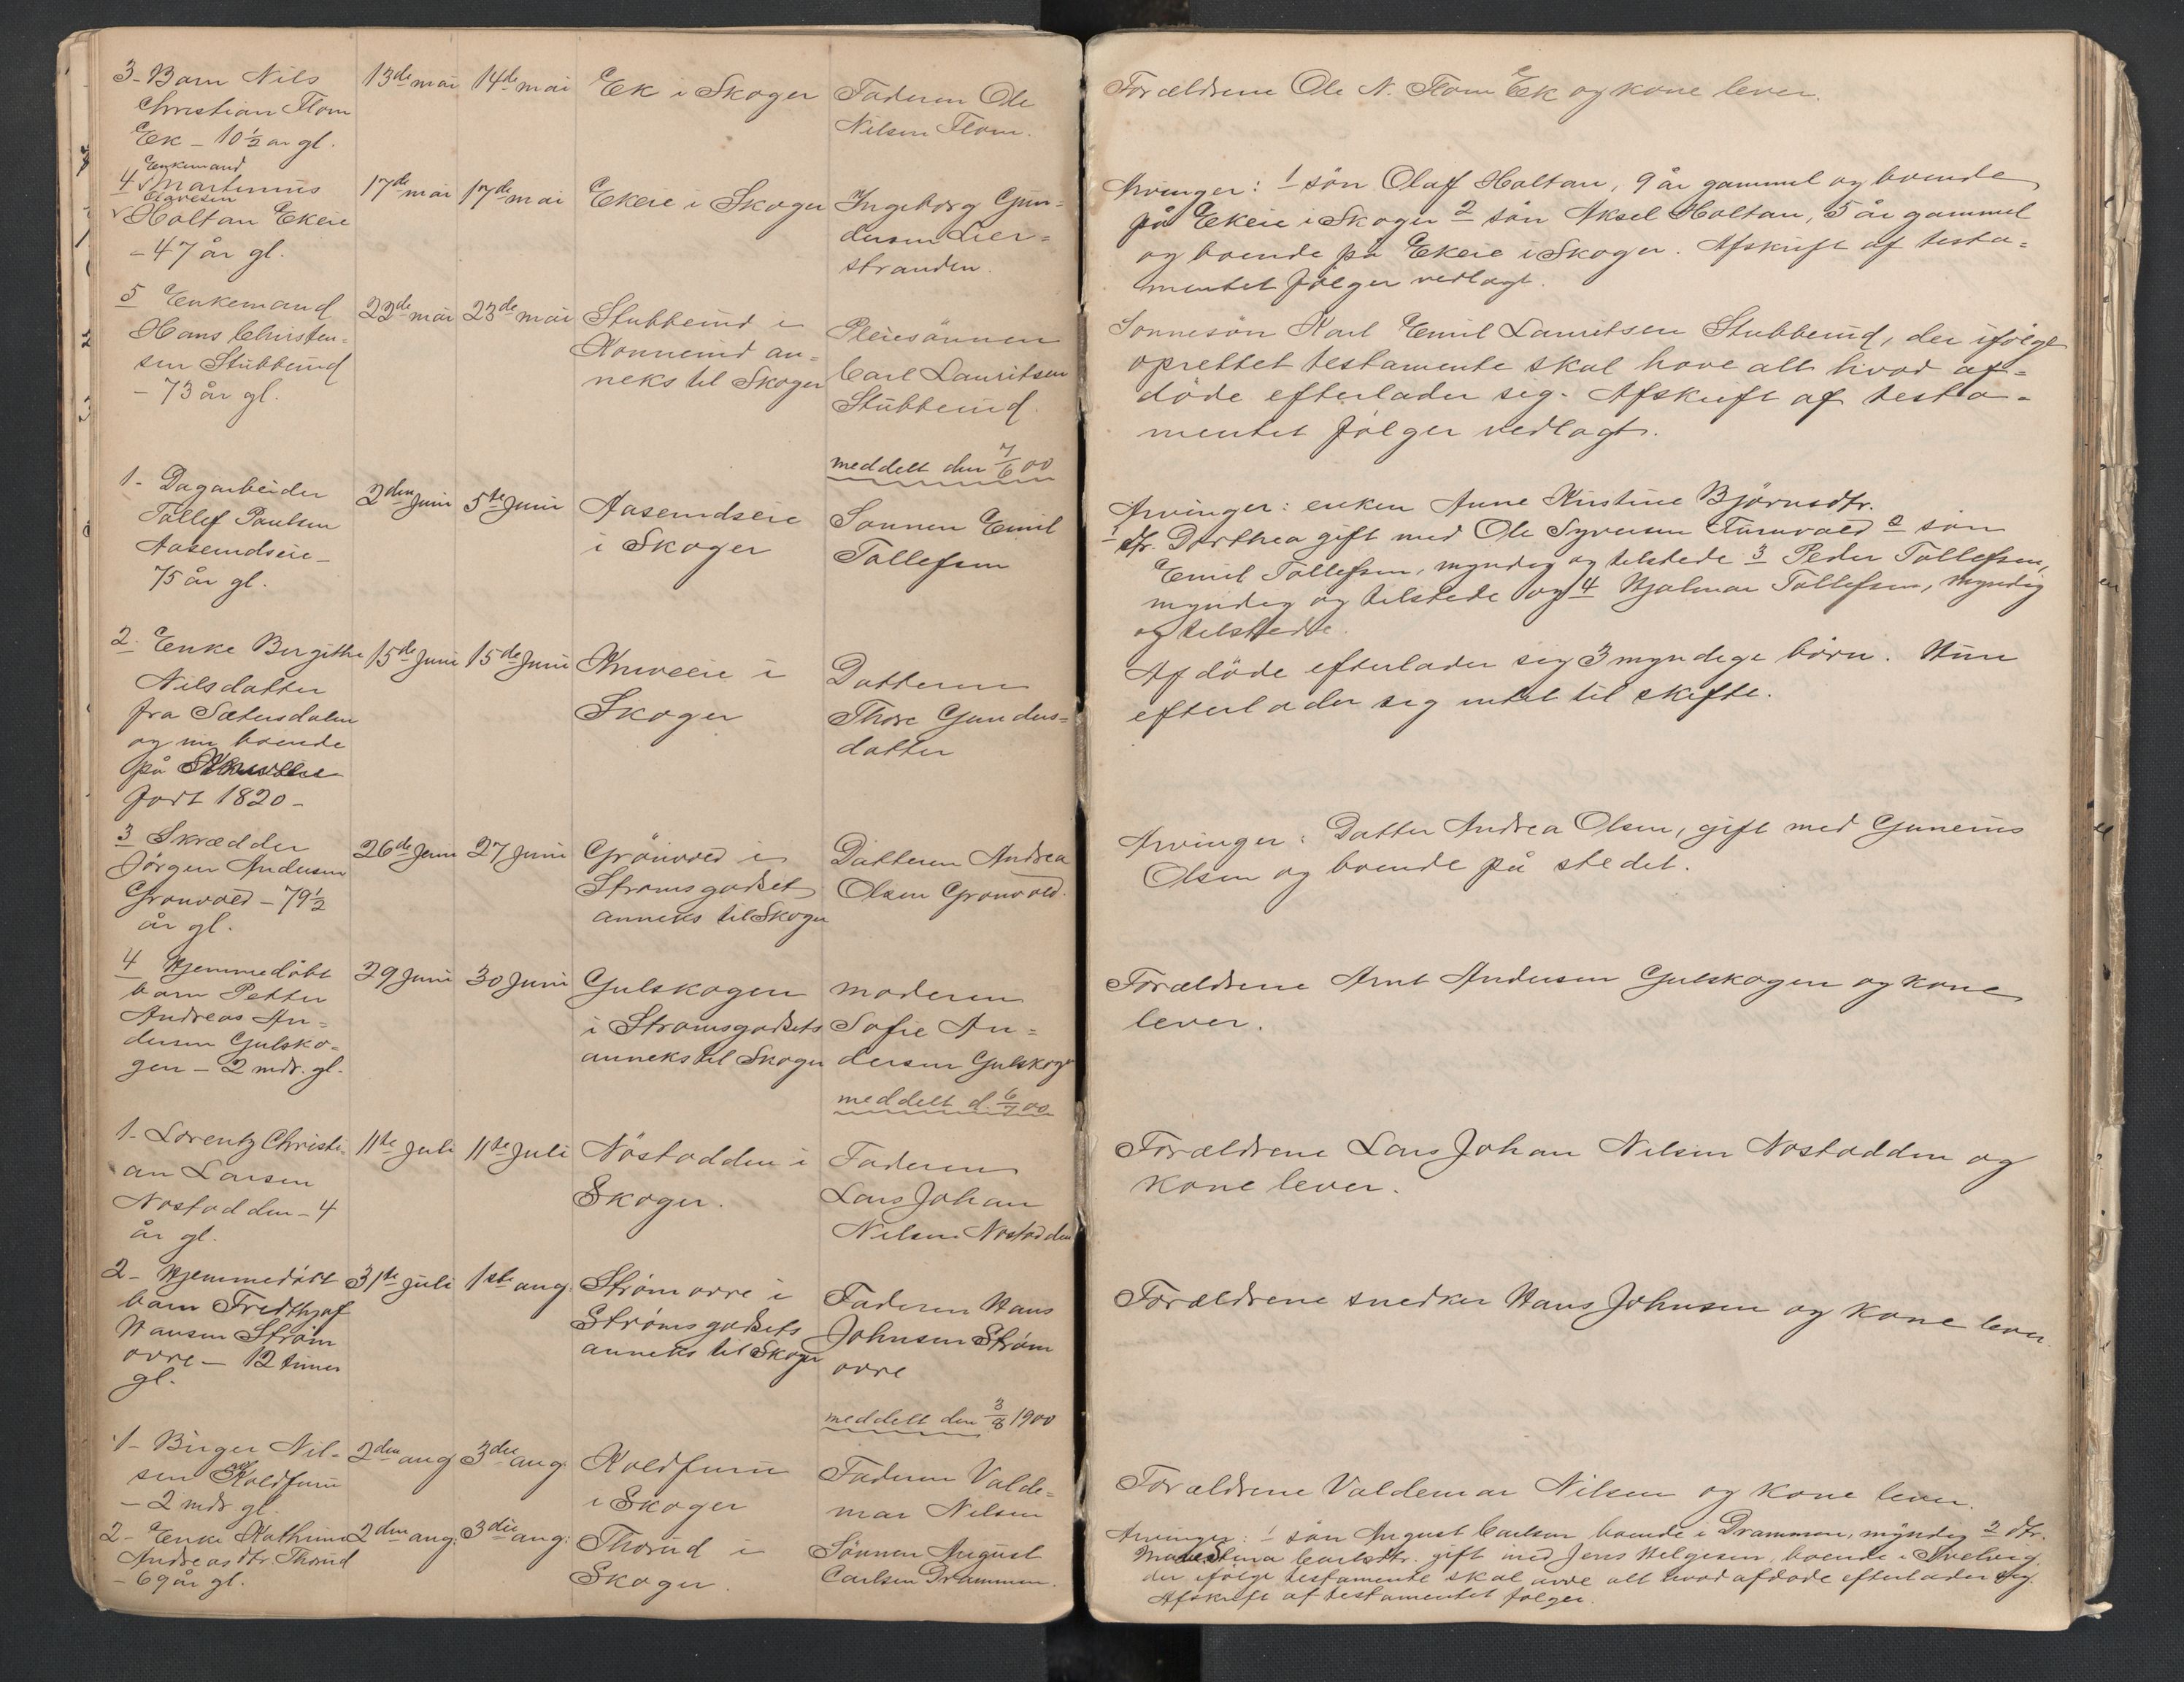 3- Barn Nils
Christian Flom
Ek - 10½ år gl.
13de mai
14de mai
Ek i Skoger
Faderen Ole
Nilsen Flom.
Forældrene Ole N. Flom Ek og kone lever.
Enkemand
4 Martinius
Holtan Ekeie
- 47 år gl.
17de mai
17de mai
Ekeie i Skoger
Ingeborg Gun-
dersen Lier-
stranden.
Arvinger: 1 sön Olaf Holtan, 9 år gammel og boende
på Ekeie i Skoger 2 sön Aksel Holtan, 5 år gammel
og boende på Ekeie i Skoger. Afskrift af testa-
mentet fölger vedlagt.
5 Enkemand
Hans Christen-
sen Stubberud
- 73 år gl.
22de mai
23de mai
Stubberud i
Konnerud an-
neks til Skoger
Pleiesönnen
Carl Lauritsen
Stubberud.
Sonnesön Karl Emil Lauritsen Stubberud, der ifölge
oprettet testamente skal have alt hvad af-
döde efterlader sig. Afskrift af testa-
mentet fölger vedlagt.
meddelt den 7/6 00
1- Dagarbeider
Tollef Paulsen
Aaserudseie -
75 år gl.
2den Juni
5te Juni
Aaserudseie
i Skoger
Sonnen Emil
Tollefsen
Arvinger: enken Anne Kirstine Björnsdtr.
1 dtr. Dorthea gift med Ole Syversen 2 sön
Emil Tollefsen, myndig og tilstede 3 Peder Tollefsen,
myndig og tilstede og 4 Hjalmar Tollefsen, myndig
og tilstede.
2. Enke Birgithe
Nilsdatter
fra Sætersdalen
og nu boende
på
født 1820-
15de Juni
15de Juni
Kniveeie i
Skoger
Datteren
Thore Gunders-
datter
Afdöde efterlader sig 3 myndige börn. Hun
efterlader sig intet til skifte.
3 Skrædder
Jörgen Andersen
Gronvold - 79½
år gl.
26de Juni
27 Juni
Grönvold i
Stromsgodset
anneks til Skoger
Datteren Andrea
Olsen Gronvold.
Arvinger: Datter Andrea Olsen, gift med Gunerius
Olsen og boende på stedet.
4 Hjemmedöbt
barn Petter
Andreas An-
dersen Gulsko-
gen - 2 mdr. gl.
29 Juni
30 Juni
Gulskogen
i Stromsgodsets
anneks til Skoger
moderen
Sofie An-
dersen Gulskog
Forældrene Arnt Andersen Gulskogen og kone
lever.
meddelt d. 6/7 00
1- Lorentz Christi-
an Larsen
Nostodden - 4
år gl.
11te Juli
11te Juli
Nöstodden i
Skoger.
Faderen
Lars Johan
Nilsen Nostodden
Forældrene Lars Johan Nilsen Nostodden og
kone lever.
2- Hjemmedöbt
barn Fredthjof
Hansen Ström
ovre - 12 timer
gl.
31te juli
1ste aug.
Strøm ovre i
Strømsgodsets
anneks til Skoger
Faderen Hans
Johnsen Strøm
ovre
Forældrene snedker Hans Johnsen og kone lever.
meddelt den 3/8 1900
1- Birger Nil-
sen Koldfuru
- 2 mdr gl.
2den aug
3die aug.
Koldfuru
i Skoger
Faderen Valde-
mar Nilsen
Forældrene Valdemar Nilsen og kone lever.
2- Enke Kathrine
Andreasdtr. Thorud
- 69 år gl.
2den aug.
3die aug.
Thorud i
Skoger.
Sönnen August
Carlsen Drammen.
Arvinger: 1 sön August Carlsen boende i Drammen, myndig 2 dtr.
Stina Carlsdtr. gift med Jens Helgesen, boende i Svelvig.
der ifölge testamente skal arve alt hvad afdøde efterlader sig.
Afskrift af testamentet følger.